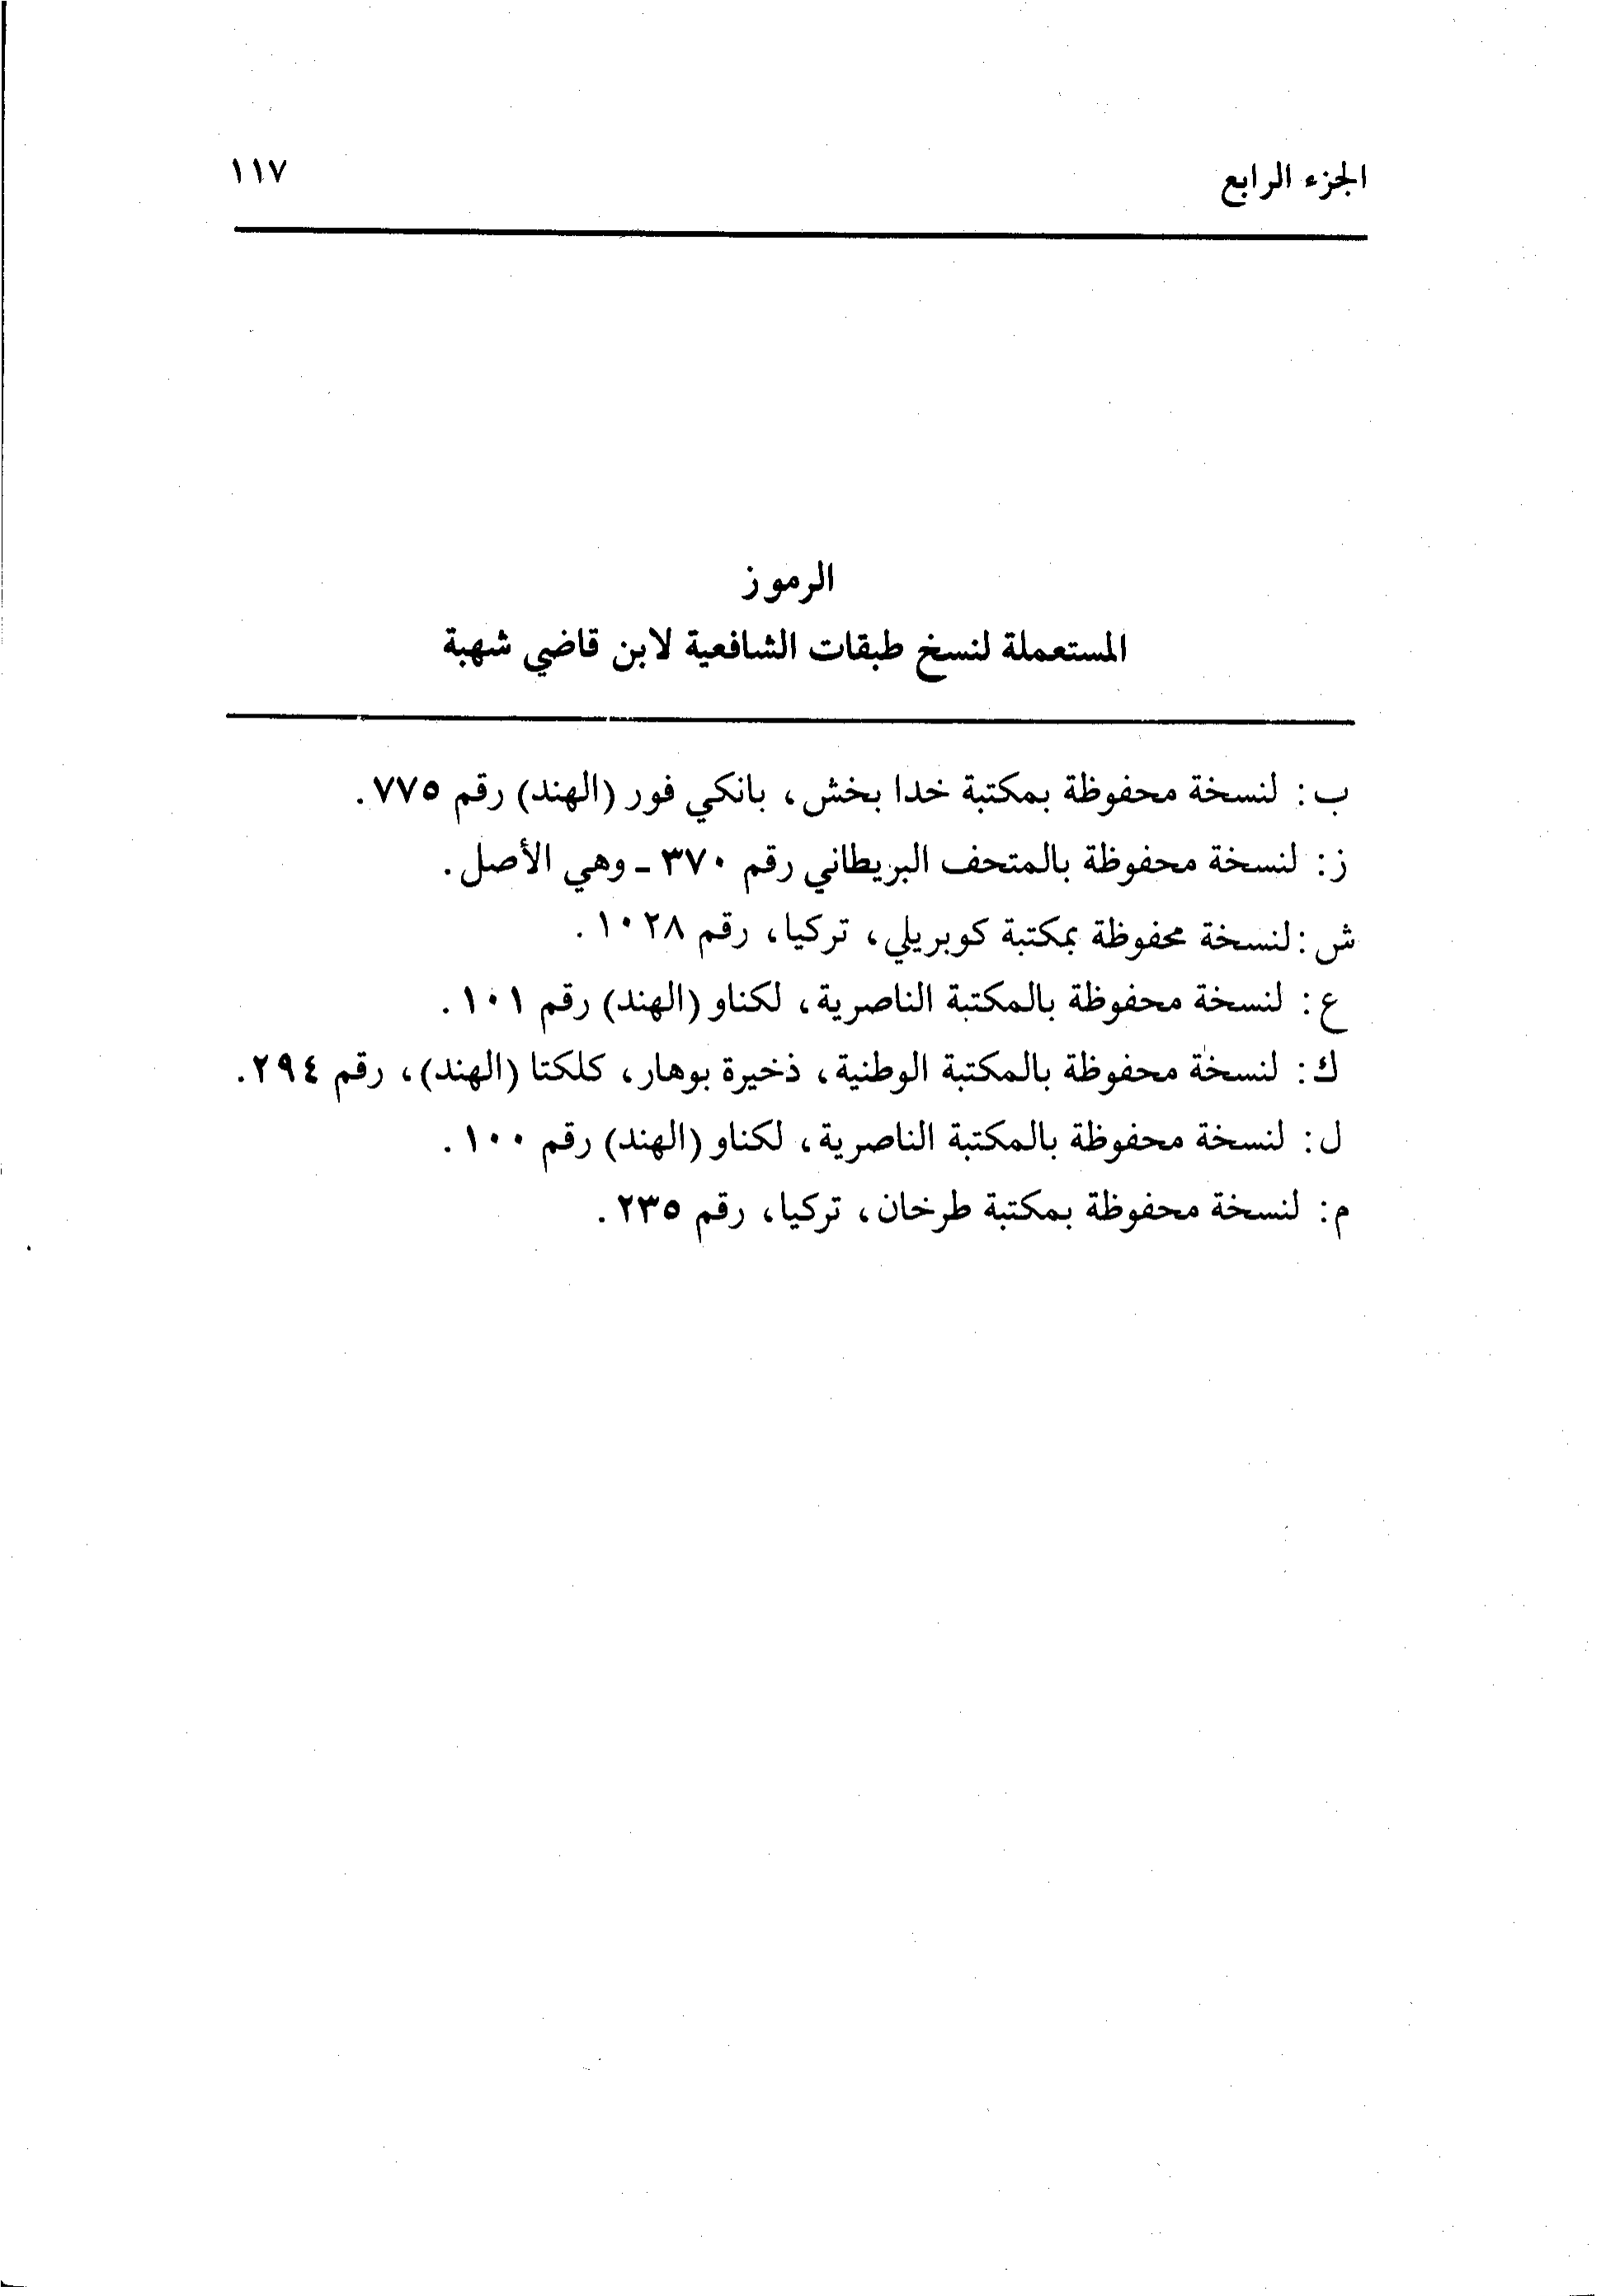 الجزء الرابع ١١٧
الرموز
المستعملة لنسخ طبقات الشافعية لابن قاضي شهبة
ب: لنسخة محفوظة بمكتبة خدا بخش، بانكي فور (الهند) رقم ٧٧٥.
ز: لنسخة محفوظة بالمتحف البريطاني رقم ٣٧٠ - وهي الأصل.
ش: لنسخة محفوظة بمكتبة كوبريلي، تركيا، رقم ١٠٢٨.
ع: لنسخة محفوظة بالمكتبة الناصرية، لكناو (الهند) رقم ١٠١.
ك: لنسخة محفوظة بالمكتبة الوطنية، ذخيرة بوهار، كلكتا (الهند)، رقم ٢٩٤.
ل: لنسخة محفوظة بالمكتبة الناصرية، لكناو (الهند) رقم ١٠٠.
م: لنسخة محفوظة بمكتبة طرخان، تركيا، رقم ٢٣٥.